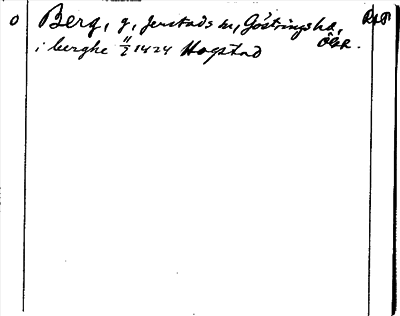 O Berg, g, Jerstads sn, Göstringshd, ÖGtl.
i berghe 11/2 1424 Hogstad